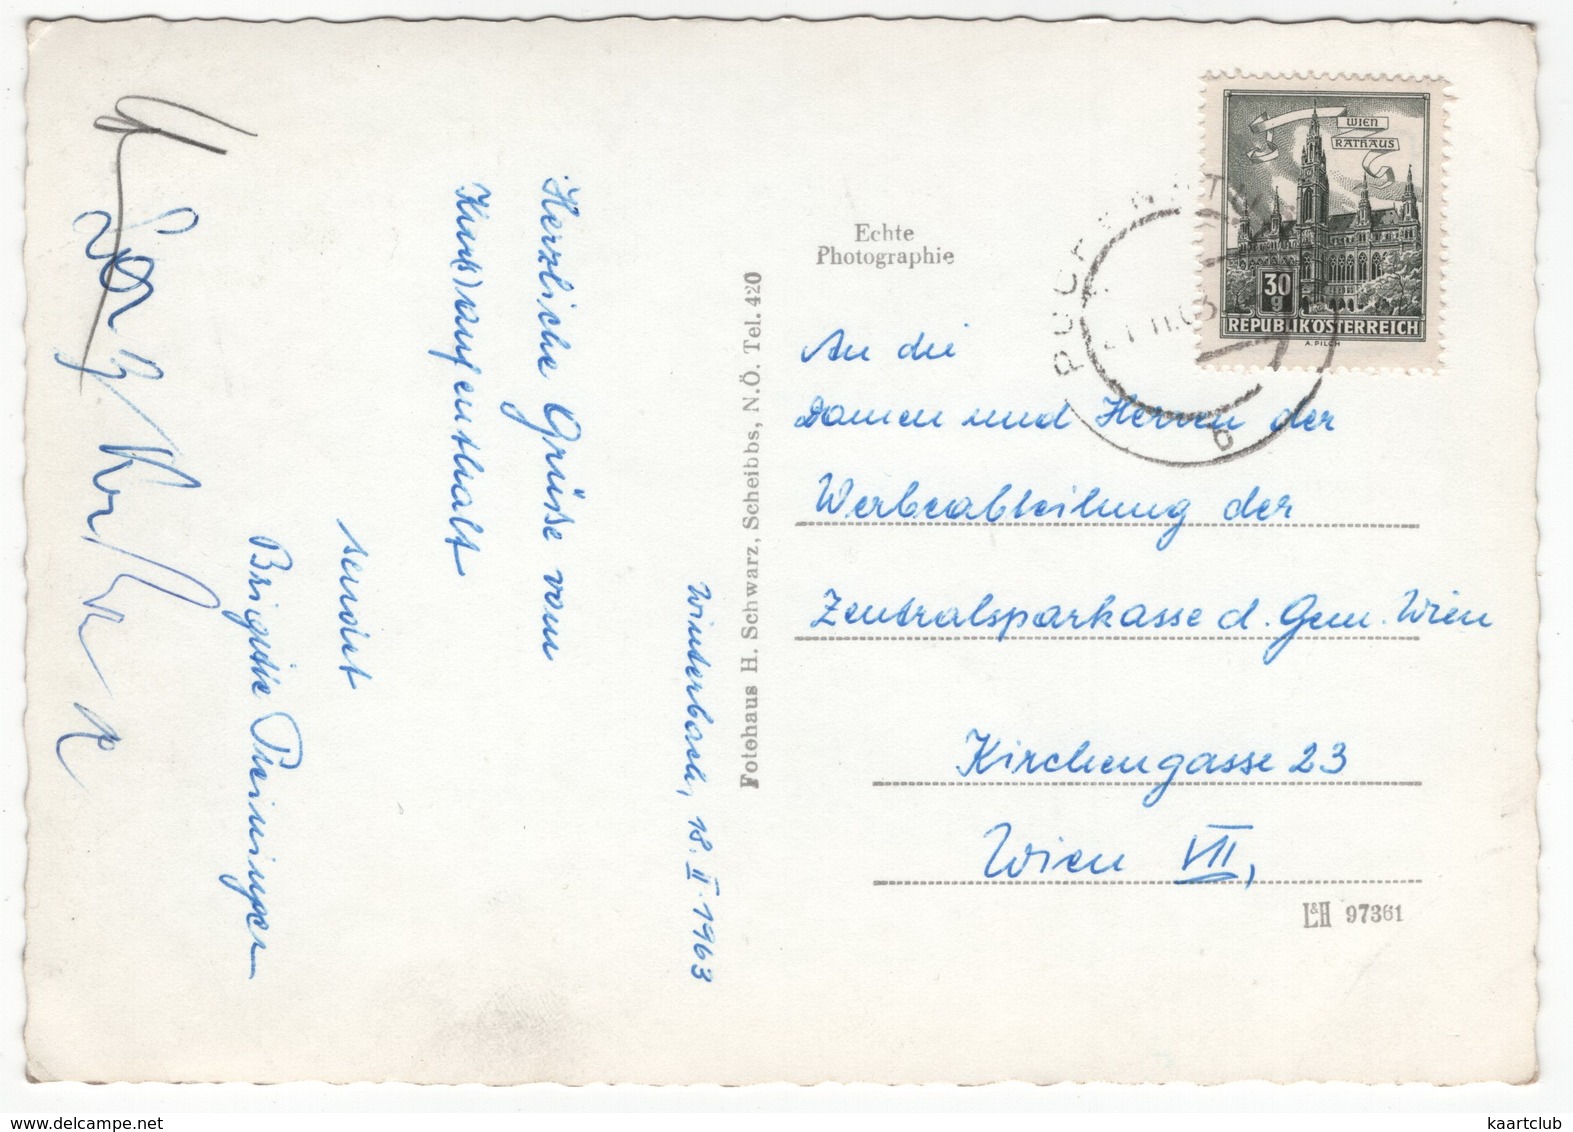 Winterbach, 18. II. 1963
Herzliche Grüße vom
Kur(s)aufenthalt
sendet
Brigitte
Fotohaus H. Schwarz, Scheibbs, N.Ö. Tel. 420
Echte
Photographie
WIEN
RATHAUS
30
g
REPUBLIK ÖSTERREICH
A. PILCH
b
An die
Damen und Herren der
Werbeabteilung der
Zentralsparkasse d. Gem. Wien
Kirchengasse 23
Wien VII,
L&H 97361
kaartclub